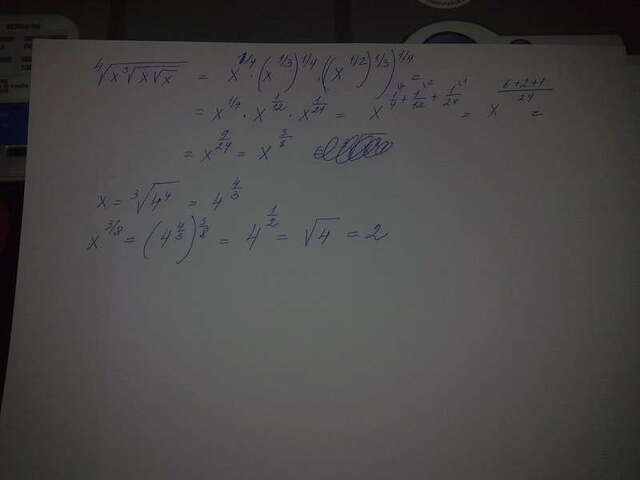 ⁴√(x³√(x√x)) = x^(1/4) · (x^(1/3))^(1/4) · ((x^(1/2))^(1/3))^(1/4) =
= x^(1/4) · x^(1/12) · x^(1/24) = x^(1/4 + 1/12 + 1/24) = x^((6+2+1)/24) =
= x^(9/24) = x^(3/8)
x = ³√(4⁴) = 4^(4/3)
x^(3/8) = (4^(4/3))^(3/8) = 4^(1/2) = √4 = 2